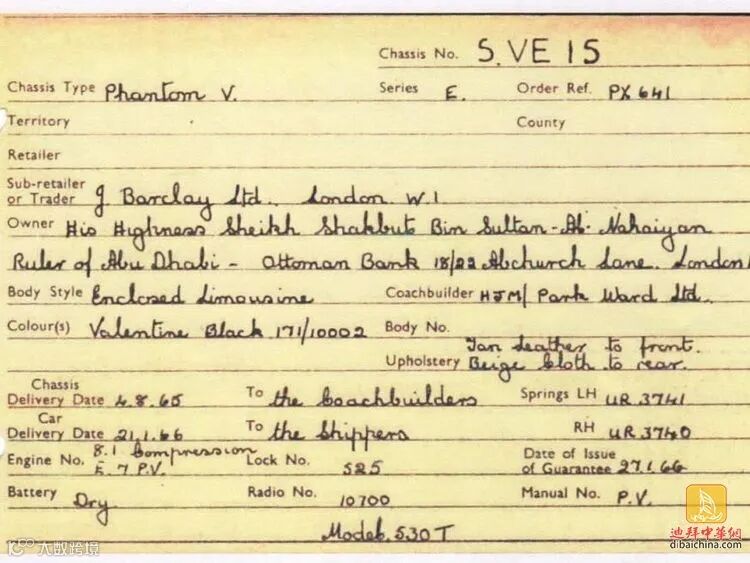 Chassis No. 5.VE 15
Chassis Type Phantom V. Series E. Order Ref. PX 641
Territory County
Retailer
Sub-retailer or Trader J Barclay Ltd. London W.1
Owner His Highness Sheikh Shakbut Bin Sultan-Al-Nahaiyan
Ruler of Abu Dhabi - Ottoman Bank 18/22 Abchurch Lane. London
Body Style Enclosed Limousine Coachbuilder HJM/ Park Ward Ltd.
Colour(s) Valentine Black 171/10002 Body No.
Upholstery Tan Leather to front.
Beige Cloth to rear.
Chassis Delivery Date 4.8.65 To the Coachbuilders Springs LH UR 3741
Car Delivery Date 21.1.66 To the Shippers RH UR 3740
Engine No. 8.1 Compression
E. 7 P.V. Lock No. 525 Date of Issue of Guarantee 27.1.66
Battery Dry Radio No. 10700 Manual No. P.V.
Model. 530 T
迪拜中華網
dibaichina.com
大数跨境